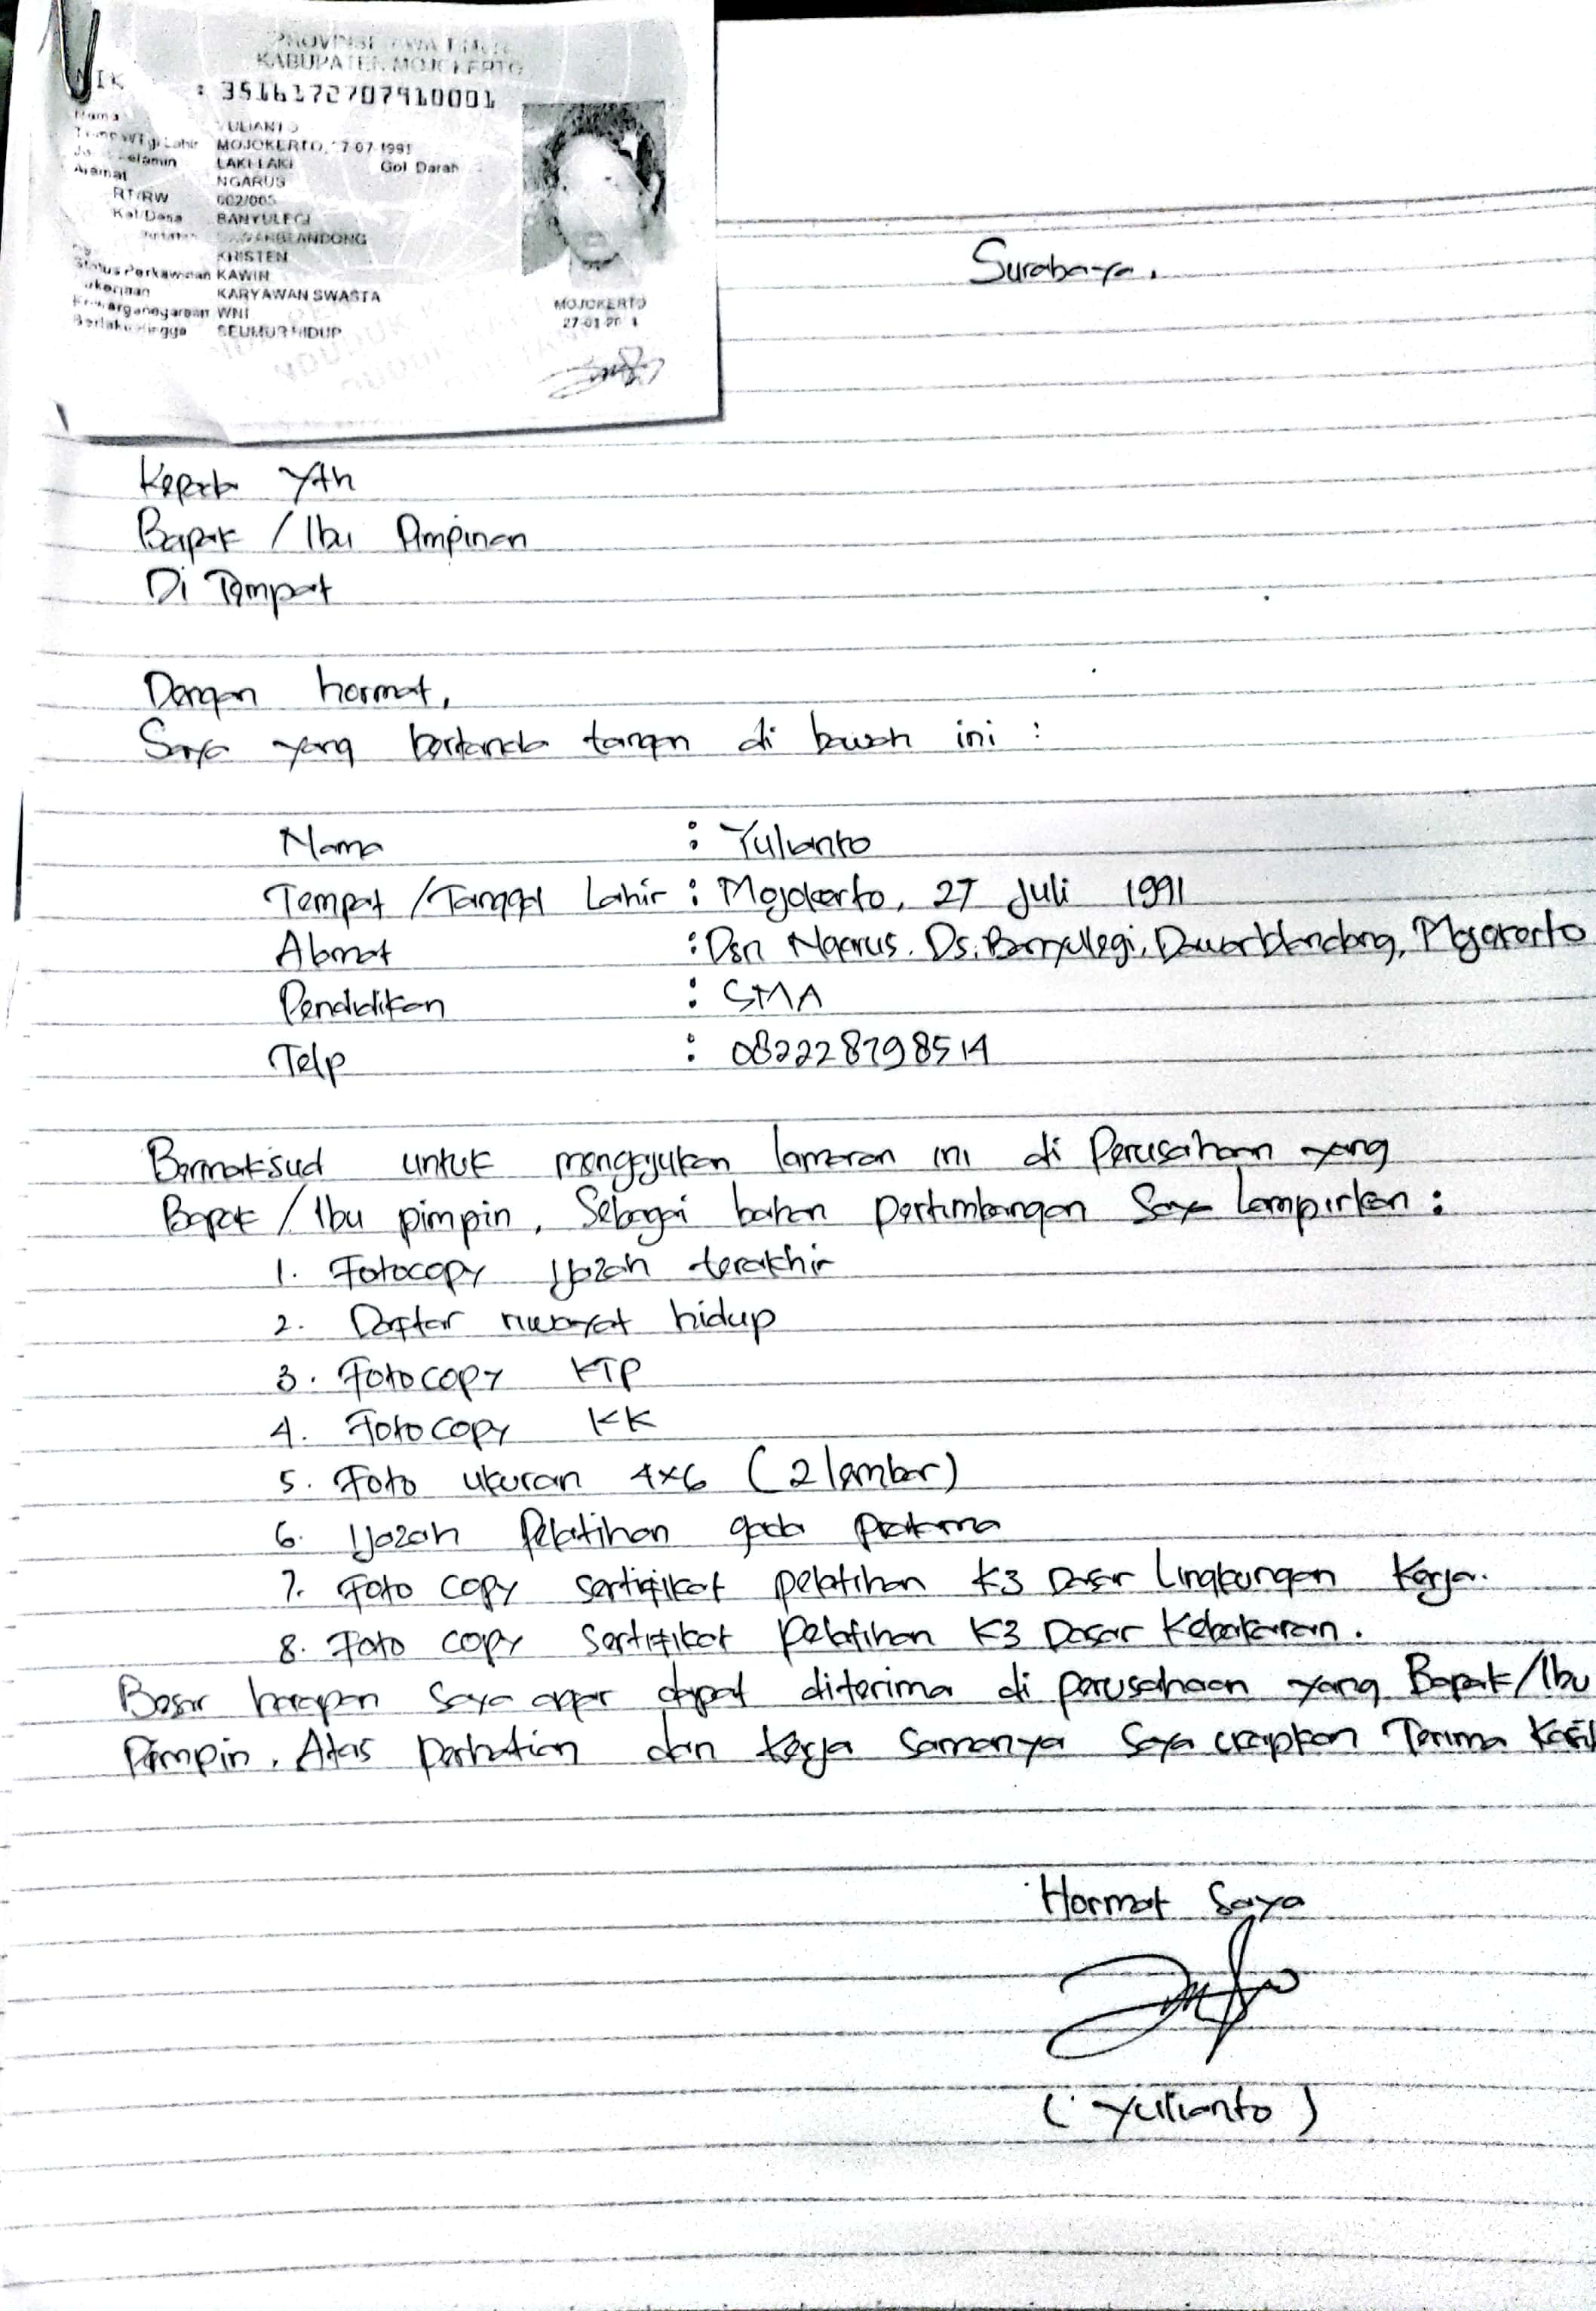 PROVINSI JAWA TIMUR
KABUPATEN MOJOKERTO
NIK : 3516172707910001
Nama YULIANTO
Tempat/Tgl Lahir MOJOKERTO, 27-07-1991
Jenis Kelamin LAKI-LAKI Gol Darah
Alamat NGARUS
RT/RW 002/005
Kel/Desa BANYULEGI
DAWARBLANDONG
KRISTEN
Status Perkawinan KAWIN
Pekerjaan KARYAWAN SWASTA
Kewarganegaraan WNI
Berlaku Hingga SEUMUR HIDUP
MOJOKERTO
Surabaya.
Kepada Yth
Bapak / Ibu Pimpinan
Di Tempat
Dengan hormat,
Saya yang bertanda tangan di bawah ini :
Nama : Yulianto
Tempat / Tanggal Lahir : Mojokerto, 27 Juli 1991
Alamat : Dsn Ngarus. Ds. Banyulegi, Dawarblandong, Mojokerto
Pendidikan : SMA
Telp : 082228798514
Bermaksud untuk mengajukan lamaran ini di Perusahaan yang
Bapak / Ibu pimpin, Sebagai bahan pertimbangan Saya Lampirkan :
1. Fotocopy Ijazah terakhir
2. Daftar riwayat hidup
3. Fotocopy KTP
4. Fotocopy KK
5. Foto ukuran 4x6 ( 2 lembar )
6. Ijazah Pelatihan gada pratama
7. Foto copy sertifikat pelatihan K3 Dasar Lingkungan Kerja.
8. Foto copy sertifikat Pelatihan K3 Dasar Kebakaran.
Besar harapan Saya agar dapat diterima di perusahaan yang Bapak/Ibu
Pimpin. Atas perhatian dan kerja samanya Saya ucapkan Terima Kasih
Hormat Saya
( Yulianto )